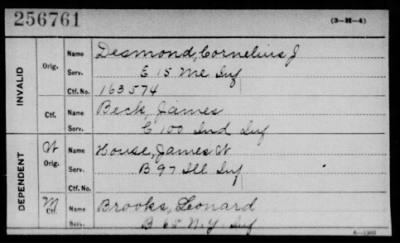 256761
(3-H-4)
INVALID
Orig. Name Desmond, Cornelius J
Serv. E 15 Me Inf
Ctf. No. 163574
Ctf. Name Beck, James
Serv. C 100 Ind Inf
DEPENDENT
W Orig. Name House, James W
Serv. B 97 Ill Inf
Ctf. No.
M Ctf. Name Brooks, Leonard
Serv. B 65 N.Y Inf